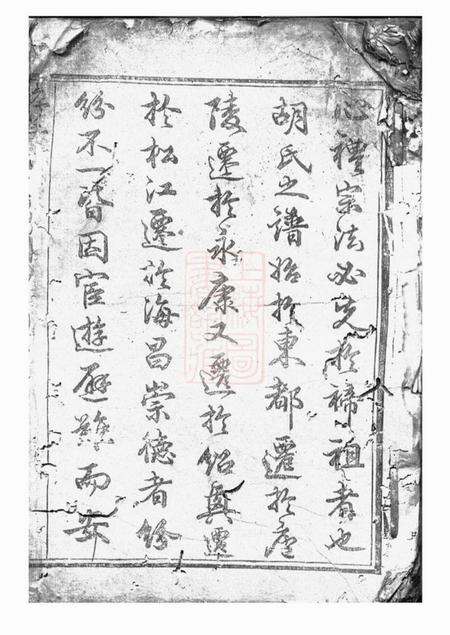 心禮宗法必先於禘祖者也
胡氏之譜始於東都遷於廬
陵遷於永康又遷於紹興遷
於松江遷於海昌崇德者紛
紛不一皆因宦遊避難而安